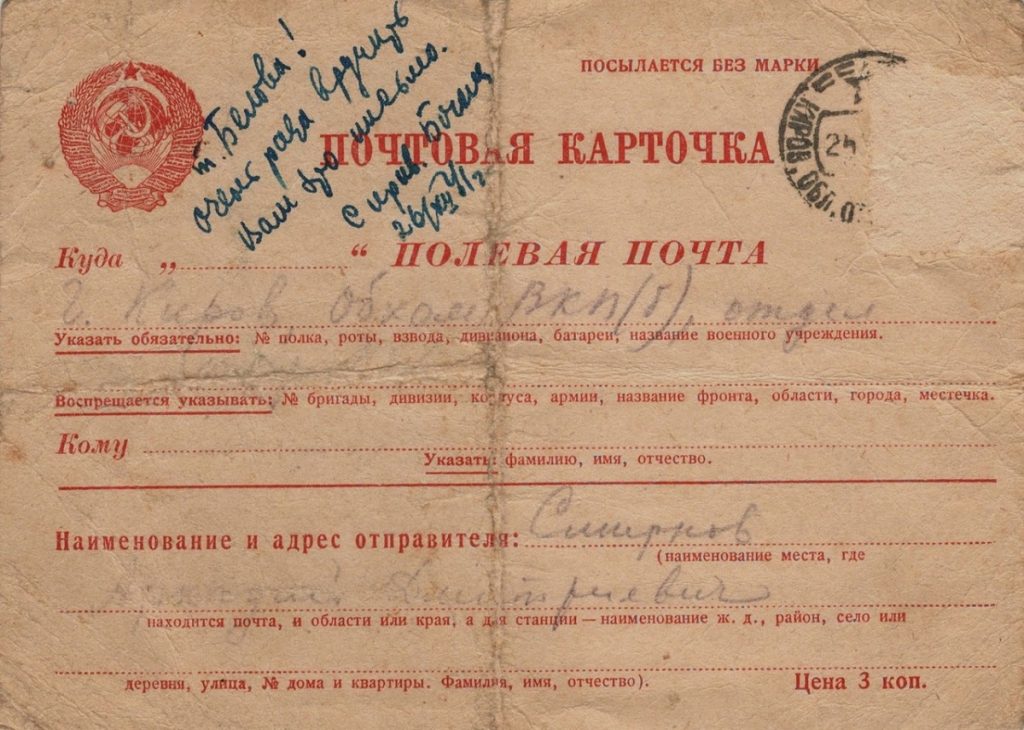 т. Белова!
очень рада вручить
вам это письмо.
с прив.
26/XII 41 г.
ПОСЫЛАЕТСЯ БЕЗ МАРКИ
ПОЧТОВАЯ КАРТОЧКА
КИРОВ
24
Куда „ “ ПОЛЕВАЯ ПОЧТА
г. Киров, Обком ВКП(б), отдел
Указать обязательно: № полка, роты, взвода, дивизиона, батареи, название военного учреждения.
Воспрещается указывать: № бригады, дивизии, корпуса, армии, название фронта, области, города, местечка.
Кому
Указать: фамилию, имя, отчество.
Наименование и адрес отправителя: Смирнов
(наименование места, где
Дмитриевич
находится почта, и области или края, а для станции — наименование ж. д., район, село или
деревня, улица, № дома и квартиры. Фамилия, имя, отчество).
Цена 3 коп.